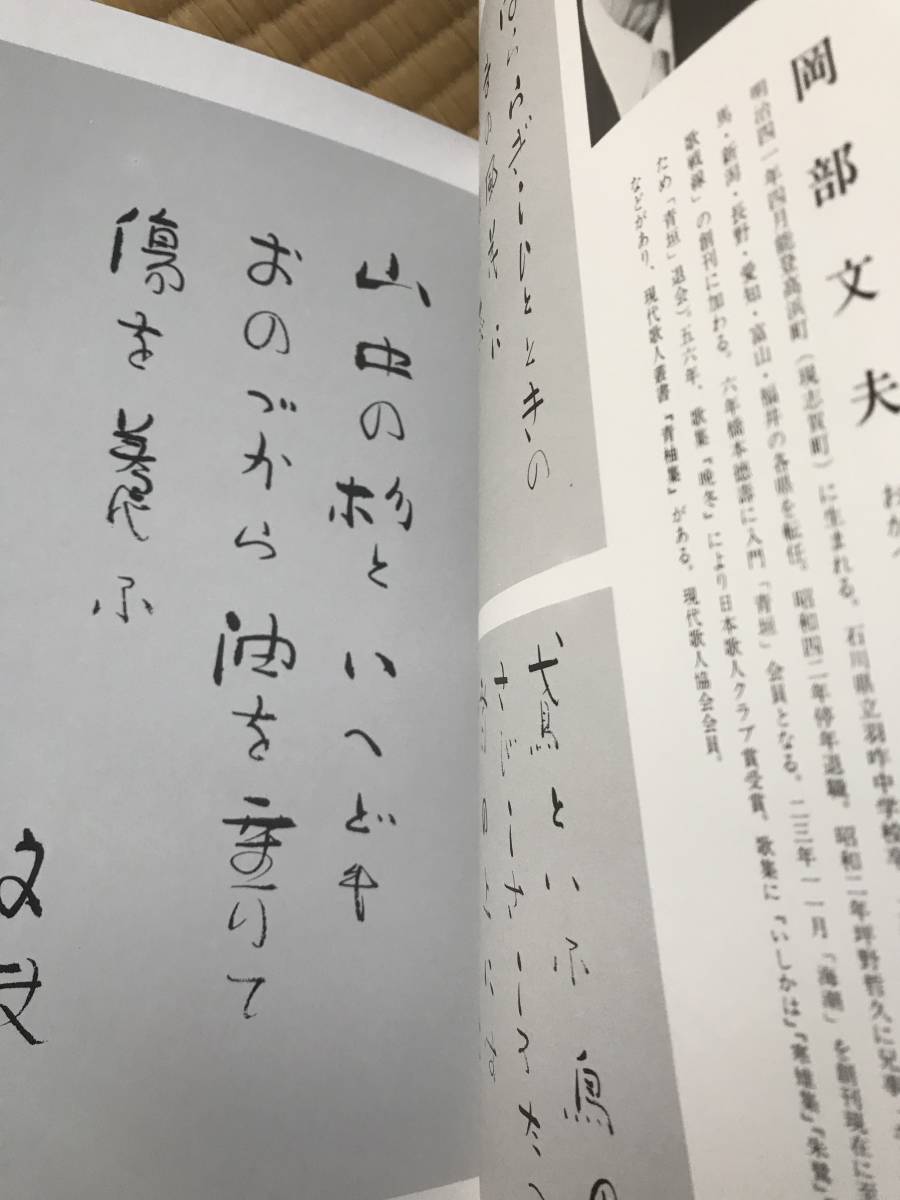 岡部文夫
おかべ
明治四一年四月能登高浜町（現志賀町）に生まれる。石川県立羽咋中学校卒
馬・新潟・長野・愛知・富山・福井の各県を転任。昭和四二年停年退職。昭和二年坪野哲久に兄事
歌戦線」の創刊に加わる。六年橋本徳壽に入門「青垣」会員となる。二三年一一月「海潮」を創刊現在に至
ため「青垣」退会）。五六年、歌集『晩冬』により日本歌人クラブ賞受賞。歌集に『いしかは』『寒雉集』『朱鷺』
などがあり、現代歌人叢書『青柚集』がある。現代歌人協会会員。
ひとときの
鳶といふ鳥の
山中の杉といへども
おのづから油を垂りて
傷を養ふ
文夫